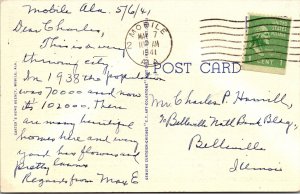 Mobile Ala. 5/6/41
Dear Charles,
This is a very
thriving city.
In 1938 the population
was 70000 and now
it's 102000. There
are many beautiful
homes here and every
yard has flowers and
pretty lawns
Regards from Max E
MOBILE
MAY 7
1941
ALA.
2
1 CENT 1
POST CARD
Mr. Charles P. Hamill,
% Belleville Nat'l Bank Bldg.,
Belleville
Illinois